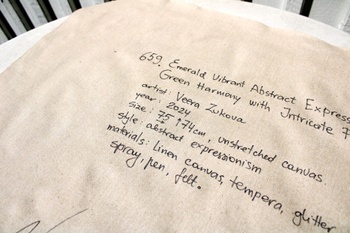 659. Emerald Vibrant Abstract Express
Green Harmony with Intricate F
artist: Veera Zukova
year: 2024
size: 75*74cm, unstretched canvas
style abstract expressionism
materials: Linen canvas, tempera, glitter
spray, pen, felt.